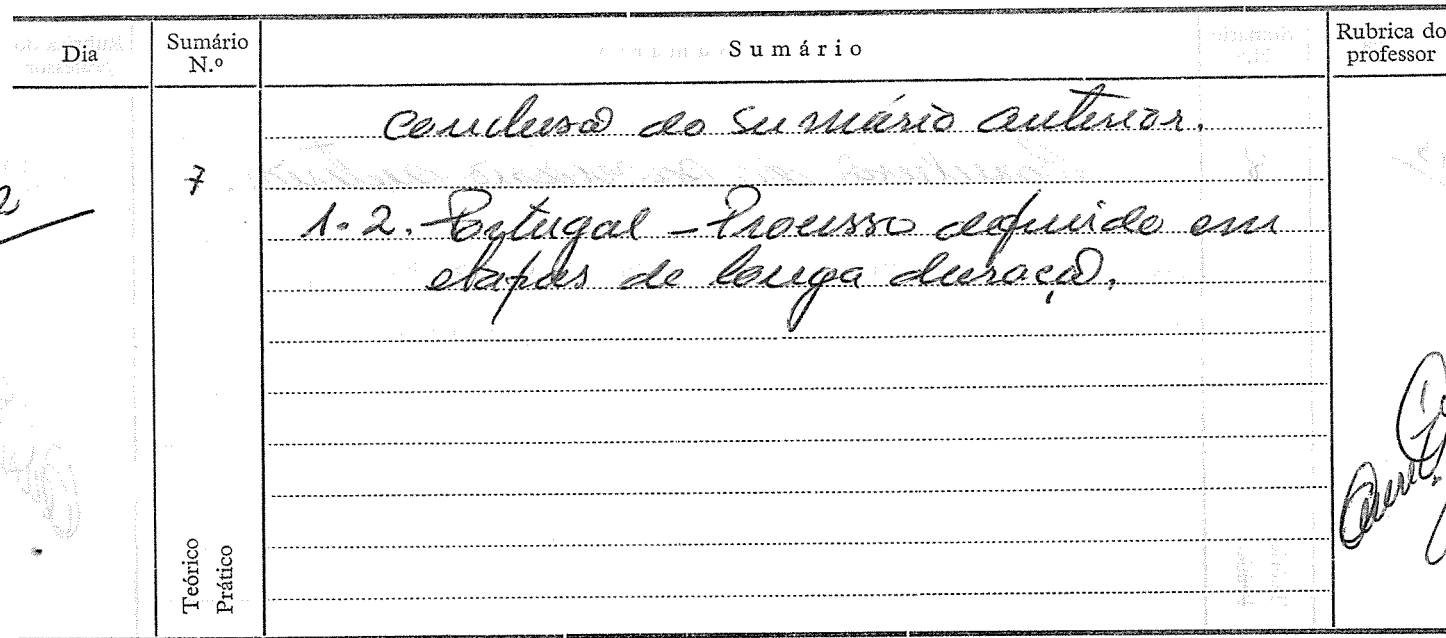 Dia
Sumário N.º
Sumário
Rubrica do professor
Conclusão do Sumário anterior.
7
1.2. Portugal - Processo definido em
etapas de longa duração.
Teórico
Prático